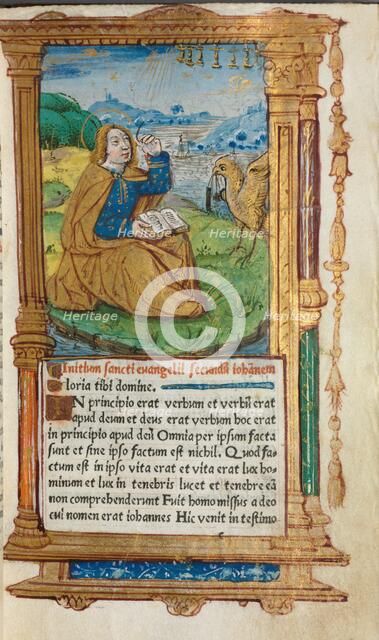 Initium sancti evangelii secundū iohānem
loria tibi domine.
IN principio erat verbum et verbū erat
apud deum et deus erat verbum hoc erat
in principio apud deū Omnia per ipsum facta
sunt et sine ipso factum est nichil. Quod fa=
ctum est in ipso vita erat et vita erat lux ho
minum et lux in tenebris lucet et tenebre eā
non comprehenderunt Fuit homo missus a deo
cui nomen erat iohannes Hic venit in testimo
Heritage Heritage Heritage
Heritage Heritage
Heritage Heritage Heritage